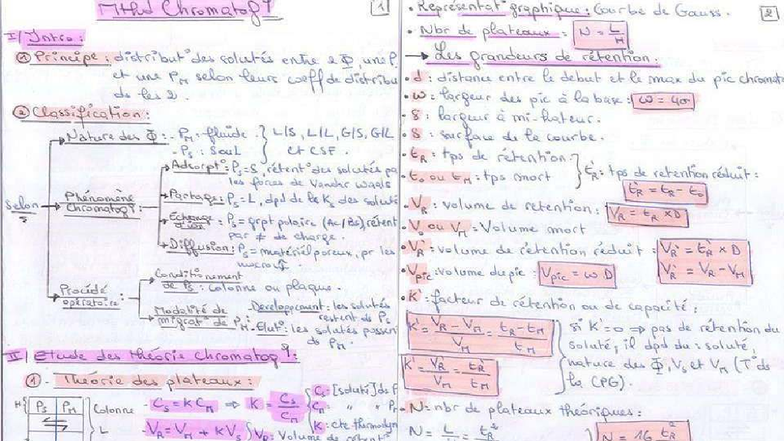 Mthd Chromatogq
1
I/ Intro:
① Principe: distribut° des solutés entre 2 Φ, une P
et une PM selon leurs coeff de distribu
ds les 2.
② Classification:
Nature des Φ: - PM: fluide.
- PS: S ou L
L/S, L/L, G/S, G/L
et CSF.
selon
Phénomène
Chromatogq:
Adsorpt°: PS = S, rétent° des solutés pa
les forces de Vander waals
Partage: PS = L, dpd de ks des soluté
Echange
PS = grpt polaire (Ac/Bs) rétent
par ≠ de charge.
Diffusion: PS = matériel poreux,
Procédé
opératoire:
Conditionnement
de PS: colonne ou plaque.
Modalité de
migrat° de PM:
Développement: les solutés
restent ds PS
Elut°: les solutés
ds PM.
II/ Etude des théorie chromatogq:
① - Théorie des plateaux:
H
PS | PM
Colonne
L
CS = K CM ⇒ K = CS/CM
CS = [soluté] ds P
K: cte thermodyn
VR = VM + K VS
VR: Volume de rétent
2
• Représentat° graphique: Courbe de Gauss.
• Nbr de plateaux: N = L/H
→ Les grandeurs de rétention:
• d: distance entre le debut et le max du pic chromat
• ω: largeur des pic à la base: ω = 4σ
• δ: largeur à mi-hateur.
• S: surface de la courbe.
• tR: tps de rétention
• t0 ou tM: tps mort
t'R: tps de rétention réduit:
t'R = tR - t0
• VR: volume de rétention: VR = tR × D
• V0 ou VM: Volume mort
• V'R: volume de rétention réduit: V'R = t'R × D
V'R = VR - VM
• Vpic: volume du pic: Vpic = ω D
• K': facteur de rétention ou de capacité:
K' = VR - VM / VM = tR - tM / tM
K' = V'R / VM = t'R / tM
si K' = 0 ⇒ pas de rétention du
soluté, il dpd du: soluté,
nature des Φ, VS et VM (T° ds
la CPG).
• N = nbr de plateaux théoriques:
N = L
N = 16